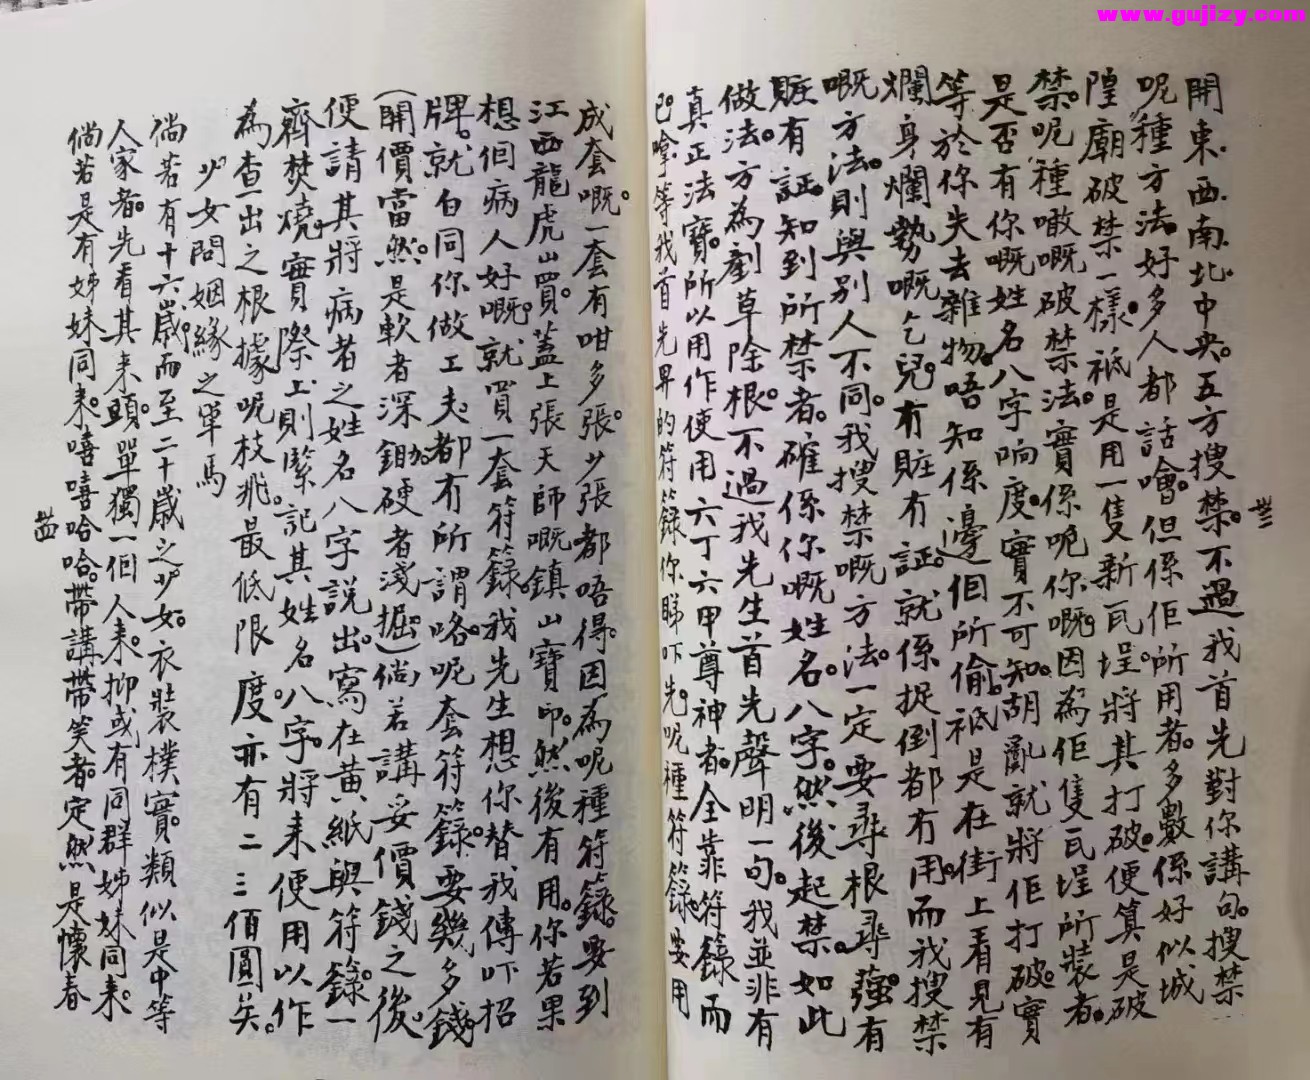 www.gujizy.com
開東．西．南．北．中央。五方搜禁。不過我首先對你講句。搜禁
呢種方法。好多人都話噲。但係佢所用者。多數係好似城
隍廟破禁一樣。祇是用一隻新瓦埕將其打破。便算是破
禁。呢種噉嘅破禁法。實係呃你嘅。因為佢隻瓦埕所裝者。
是否有你嘅姓名八字响度。實不可知。胡亂就將佢打破。實
等於你失去雜物。唔知係邊佢所偷。祇是在街上看見有
爛身爛勢嘅乞兒。有賍有証。就係捉倒都冇用。而我搜禁
嘅方法。則與別人不同。我搜禁嘅方法。一定要尋根尋蔃。有
賍有証。知到所禁者。確係你嘅姓名。八字。然後起禁。如此
做法。方為剷草除根。不過我先生首先聲明一句。我並非有
真正法寶。所以用作使用六丁六甲尊神者。全靠符籙而
已。嗱等我首先昇的符籙你睇吓先。呢種符籙。要用
卅三
成套嘅。一套有咁多張。少張都唔得。因為呢種符籙。要到
江西龍虎山買。蓋上張天師嘅鎮山寶印。然後有用。你若果
想佢病人好嘅。就買一套符籙。我先生想你替我傳吓招
牌。就白同你做工夫。都冇所謂咯。呢套符籙。要幾多錢
(開價當然。是軟者深鉏。硬者淺掘)倘若講妥價錢之後。
便請其將病者之姓名八字說出。寫在黃紙與符籙。一
齊焚燒。實際上則緊記其姓名。八字。將來便用以作
為查一出之根據。呢枝兆最低限度。亦有二三佰圓矣。
少女問姻緣之單馬
倘若有十六歲。而至二十歲之少女。衣裝樸實。類似是中等
人家者。先看其來頭。單獨一個人來。抑或有同群姊妹同來。
倘若是有姊妹同來。嘻嘻哈哈。帶講帶笑者。定然是懷春